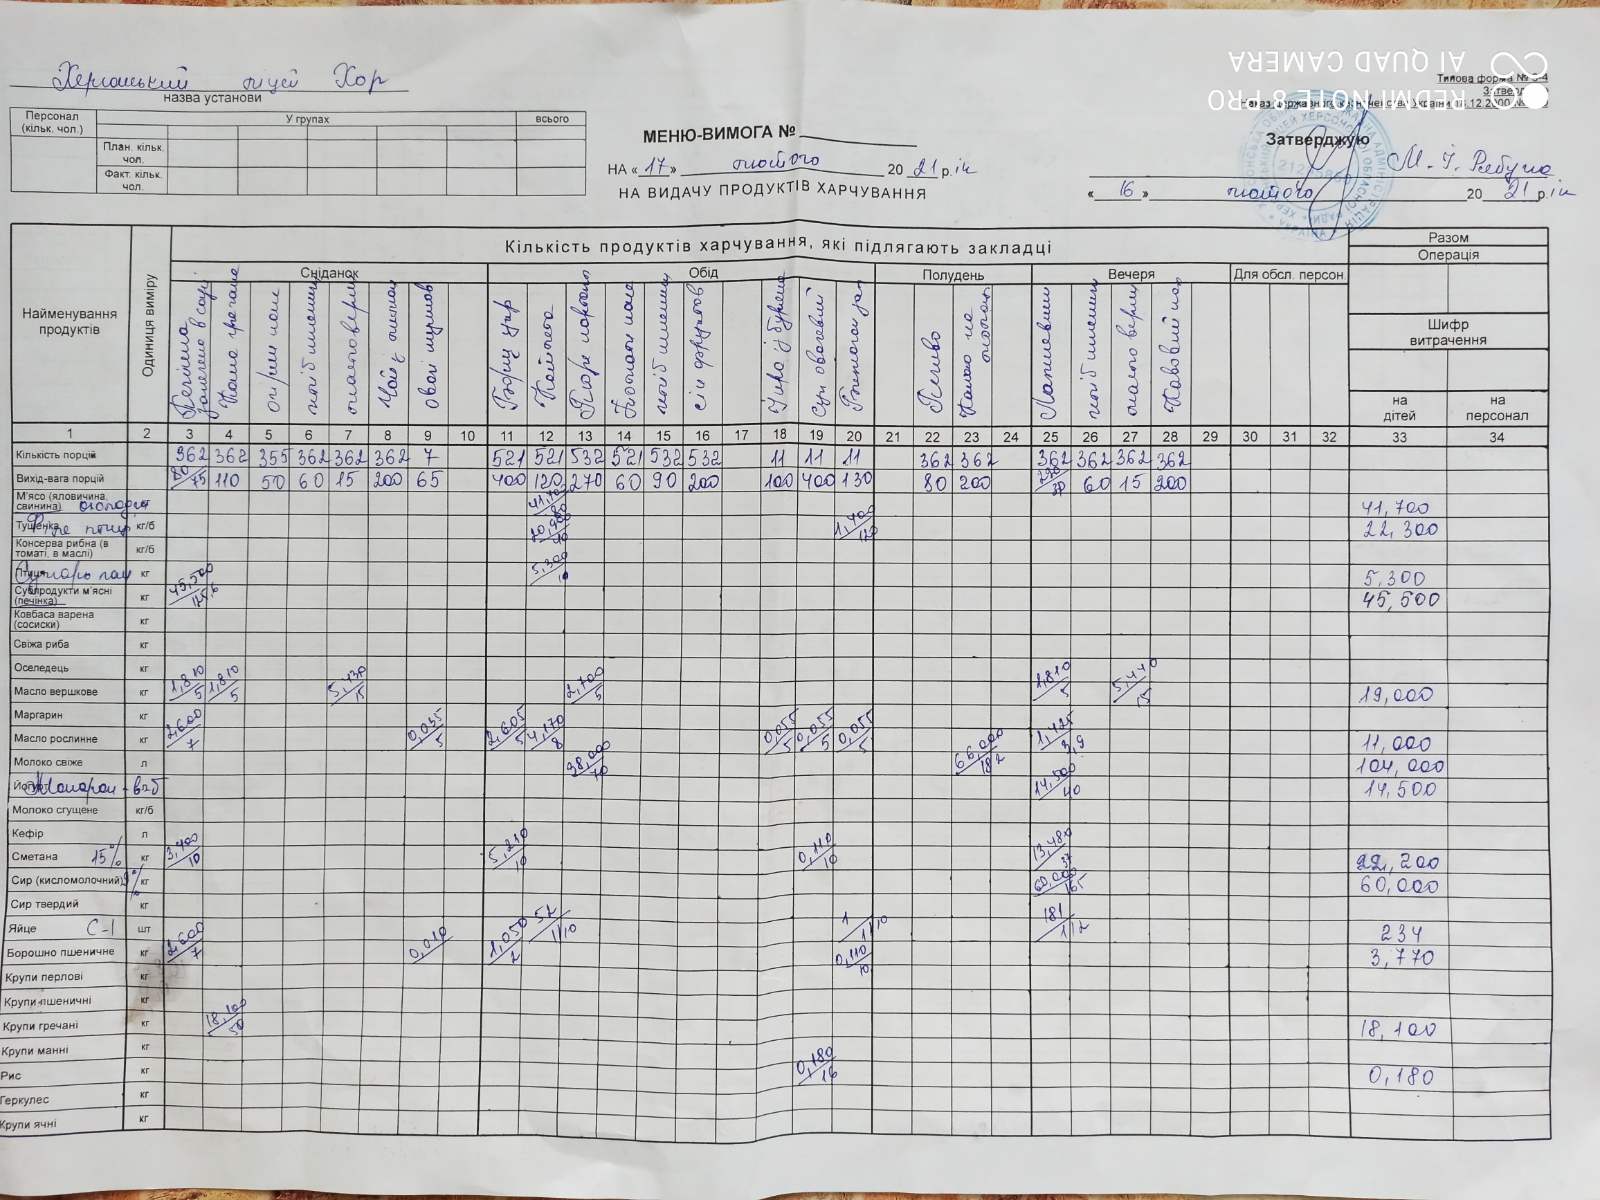 Херсонський ліцей Хор
назва установи
AI QUAD CAMERA
REDMI NOTE 8 PRO
Типова форма №
Затвер
Персонал (кільк. чол.) У групах всього
План. кільк. чол.
Факт. кільк. чол.
МЕНЮ-ВИМОГА №
НА «17» лютого 2021 рік
НА ВИДАЧУ ПРОДУКТІВ ХАРЧУВАННЯ
Затверджую
«16» лютого 2021 рік
Найменування продуктів
Одиниця виміру
Кількість продуктів харчування, які підлягають закладці
Разом
Операція
Шифр витрачення
на дітей на персонал
Сніданок Обід Полудень Вечеря Для обсл. персон.
Печінка Каша гречана хліб пшениц масло верш Чай з Овочі
Борщ укр Котлета Пюре хліб пшениц сік фруктов
Суп овочевий
Печиво Какао на молоці
хліб пшениц масло верш
1 2 3 4 5 6 7 8 9 10 11 12 13 14 15 16 17 18 19 20 21 22 23 24 25 26 27 28 29 30 31 32 33 34
Кількість порцій 362 362 355 362 362 362 7 521 521 532 521 532 532 11 11 11 362 362 362 362 362 362
Вихід-вага порцій 80/75 110 50 60 15 200 65 400 120 270 60 90 200 100 400 130 80 200 60 15 200
М'ясо (яловичина, свинина) кг 41,700
Тушенка кг/б 1,400/120 22,300
Консерва рибна (в томаті, в маслі) кг/б
кг 5,300/10 5,300
Субпродукти м'ясні (печінка) кг 45,500 45,500
Ковбаса варена (сосиски) кг
Свіжа риба кг
Оселедець кг
Масло вершкове кг 1,810/5 1,810/5 5,430/15 2,700/5 1,810/5 5,440/15 19,000
Маргарин кг
Масло рослинне кг 2,600/7 0,035/5 2,605/5 4,170/8 0,055/5 0,055/5 0,055/5 1,425/3,9 11,000
Молоко свіже л 38,000/70 66,000/182 104,000
14,500/40 14,500
Молоко сгущене кг/б
Кефір л
Сметана 15% кг 3,400/10 5,210/10 0,110/10 13,480/37 22,200
Сир (кисломолочний) 9% кг 60,000/165 60,000
Сир твердий кг
Яйце С-1 шт 52 1/10 1 1/10 181 1/2 234
Борошно пшеничне кг 2,600/7 0,010 1,050/2 0,110/10 3,770
Крупи перлові кг
Крупи пшеничні кг
Крупи гречані кг 18,100/50 18,100
Крупи манні кг
Рис кг 0,180/16 0,180
Геркулес кг
Крупи ячні кг